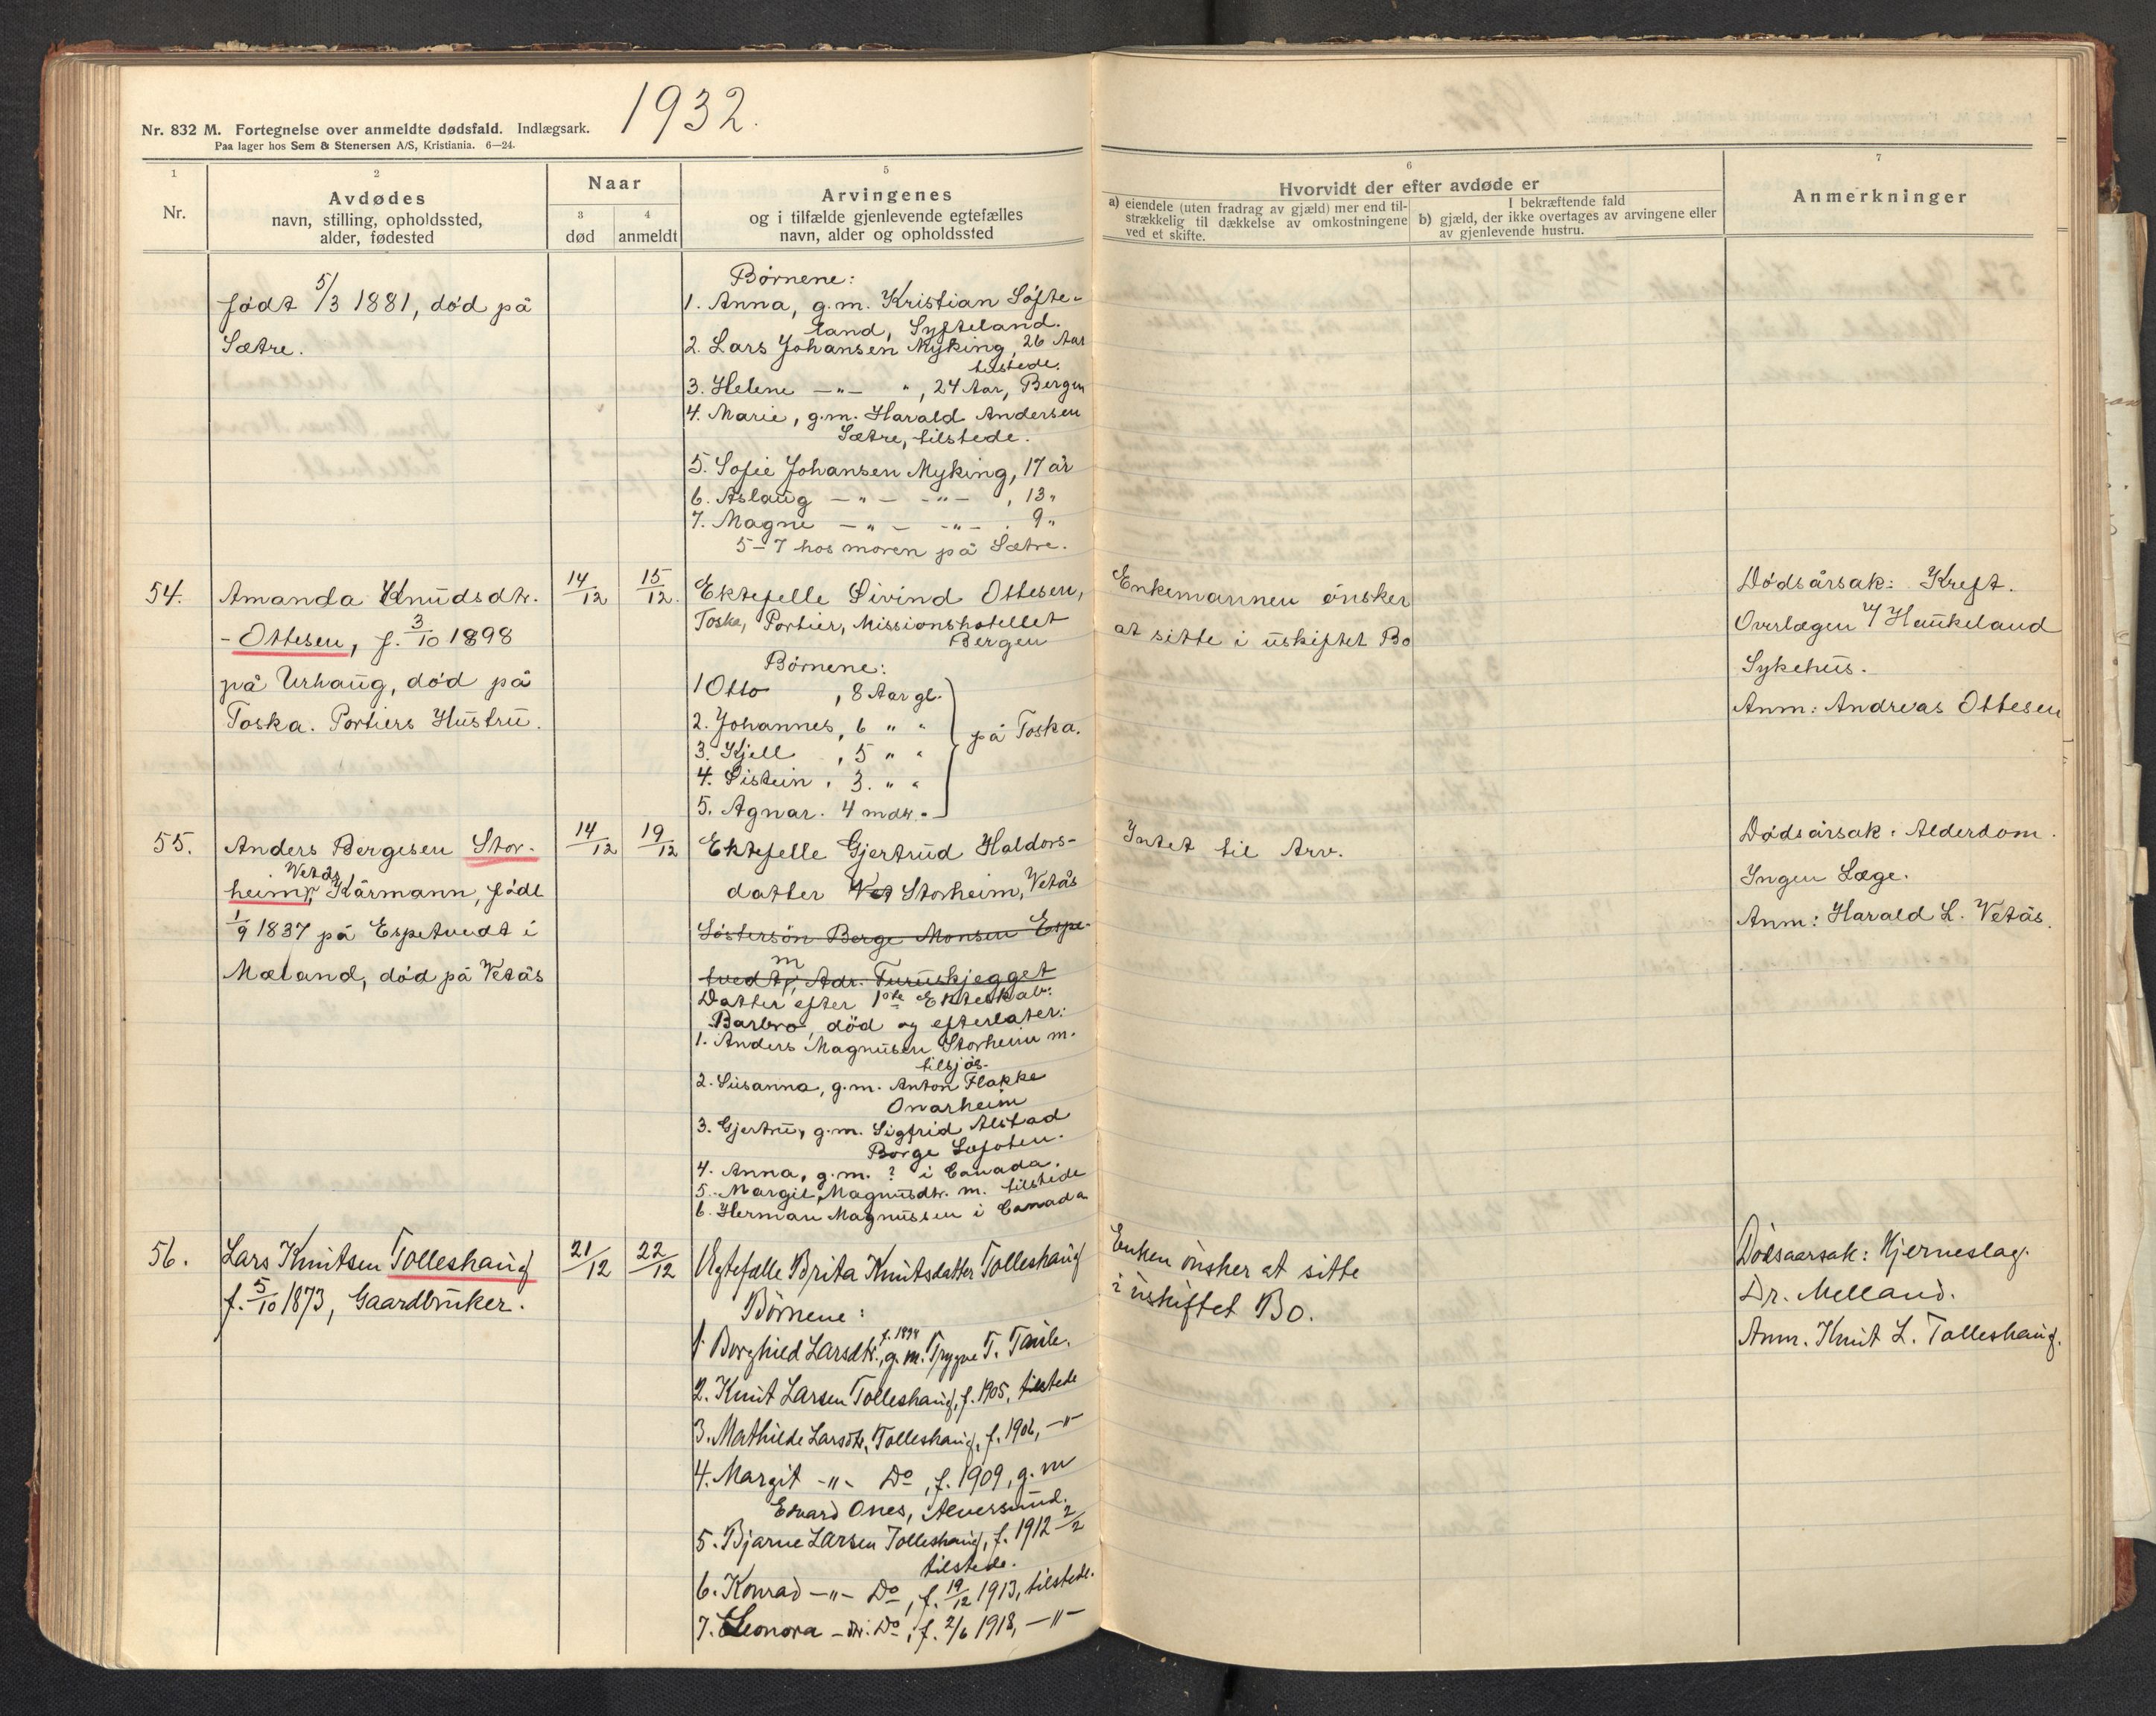 1932.
Nr. 832 M. Fortegnelse over anmeldte dødsfald. Indlægsark.
Paa lager hos Sem & Stenersen A/S, Kristiania. 6—24.
1
Nr.
2
Avdødes
navn, stilling, opholdssted,
alder, fødested
Naar
3
død
4
anmeldt
5
Arvingenes
og i tilfælde gjenlevende egtefælles
navn, alder og opholdssted
6
Hvorvidt der efter avdøde er
a) eiendele (uten fradrag av gjæld) mer end til-
strækkelig til dækkelse av omkostningene
ved et skifte.
I bekræftende fald
b) gjæld, der ikke overtages av arvingene eller
av gjenlevende hustru.
7
Anmerkninger
født 5/3 1881, död på
Sætre.
Börnene:
1. Anna, g.m. Kristian Söfte-
land, Syfteland.
2. Lars Johansen Myking, 26 Aar
tilstede.
3. Helene —"— ", 24 Aar, Bergen
4. Marie, g.m. Harald Andersen
Sætre, tilstede.
5. Sofie Johansen Myking, 17 år
6. Aslaug —"— —"— , 13 "
7. Magne —"— —"— . 9 "
5–7 hos moren på Sætre.
54.
Amanda Knudsdtr.
- Ottesen, f. 3/10 1898
på Urhaug, död på
Toska. Portiers Hustru.
14/12
15/12.
Ektefelle Öivind Ottesen,
Toska, Portier, Missionshotellet
Bergen
Börnene:
1 Otto , 8 Aar gl.
2. Johannes, 6 " "
3. Kjell , 5 " "
4. Öistein , 3. " "
5. Agnar. 4 mdr.
på Toska.
Enkemannen önsker
at sitte i uskiftet Bo
Dødsårsak: Kreft.
Overlægen v/ Haukeland
Sykehus.
Anm: Andreas Ottesen
55.
Anders Bergesen Stor-
heim, Vetås, Kårmann, född
1/9 1837 på Espetvedt i
Mæland, död på Vetås
14/12
19/12
Ektefelle Gjertrud Haldors-
datter Vet Storheim, Vetås
Söstersön Berge Monsen Espe-
tvedt, m, Adr. Furuskjegget
Datter efter 1ste Ekteskab:
Barbro, död og efterlater:
1. Anders Magnusen Storheim m.
tilsjös.
2. Susanna, g.m. Anton Flakke
Onarheim
3. Gjertru, g.m. Sigfrid Alstad
Borge Lofoten.
4. Anna, g.m. ? i Canada.
5. Margit, Magnusdtr. m. tilstede
6. Herman Magnussen i Canada
Intet til Arv.
Dødsårsak: Alderdom.
Ingen Læge.
Anm: Harald L. Vetås.
56.
Lars Knutsen Tolleshaug
f. 5/10 1873, Gaardbruker.
21/12
22/12
Egtefælle Brita Knutsdatter Tolleshaug
Börnene:
1. Borghild Larsdtr., f. 1894 g.m. Trygve T. Taule.
2. Knut Larsen Tolleshaug, f. 1905, tilstede
3. Mathilde Larsdtr. Tolleshaug, f. 1906, —"—
4. Margit —"— Do, f. 1909, g.m
Edvard Ones, Alversund.
5. Bjarne Larsen Tolleshaug, f. 1912 2/2
tilstede.
6. Konrad —"— Do, f. 19/12 1913, tilstede.
7. Eleonora — dtr. Do, f. 2/6 1918, —"—
Enken önsker at sitte
i uskiftet Bo.
Dødsaarsak: Hjerneslag.
Dr. Melland.
Anm. Knut L. Tolleshaug.